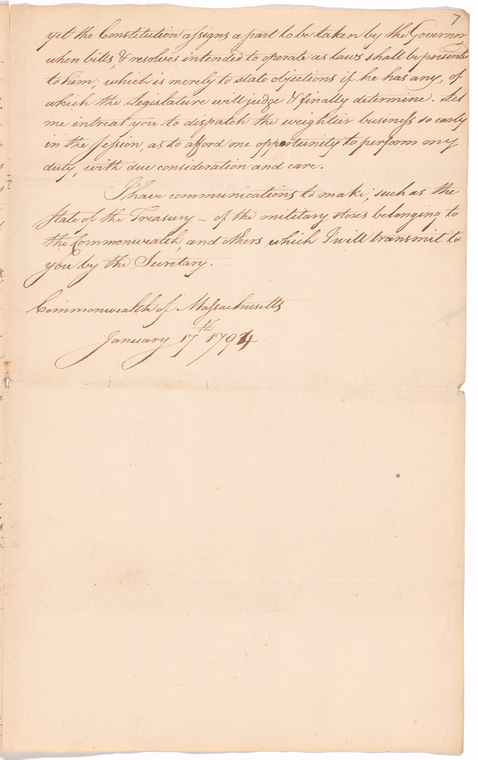 7
yet the Constitution assigns a part to be taken by the Governor
when bills & resolves intended to operate as laws shall be presented
to him; which is merely to state objections if he has any, of
which the Legislature will judge & finally determine. Let
me intreat you to dispatch the weightier business so early
in the Session, as to afford me opportunity to perform my
duty, with due consideration and care.
I have communications to make, such as the
State of the Treasury – of the military stores belonging to
the Commonwealth, and others, which I will transmit to
you by the Secretary.
Commonwealth of Massachusetts
January 17th 1794